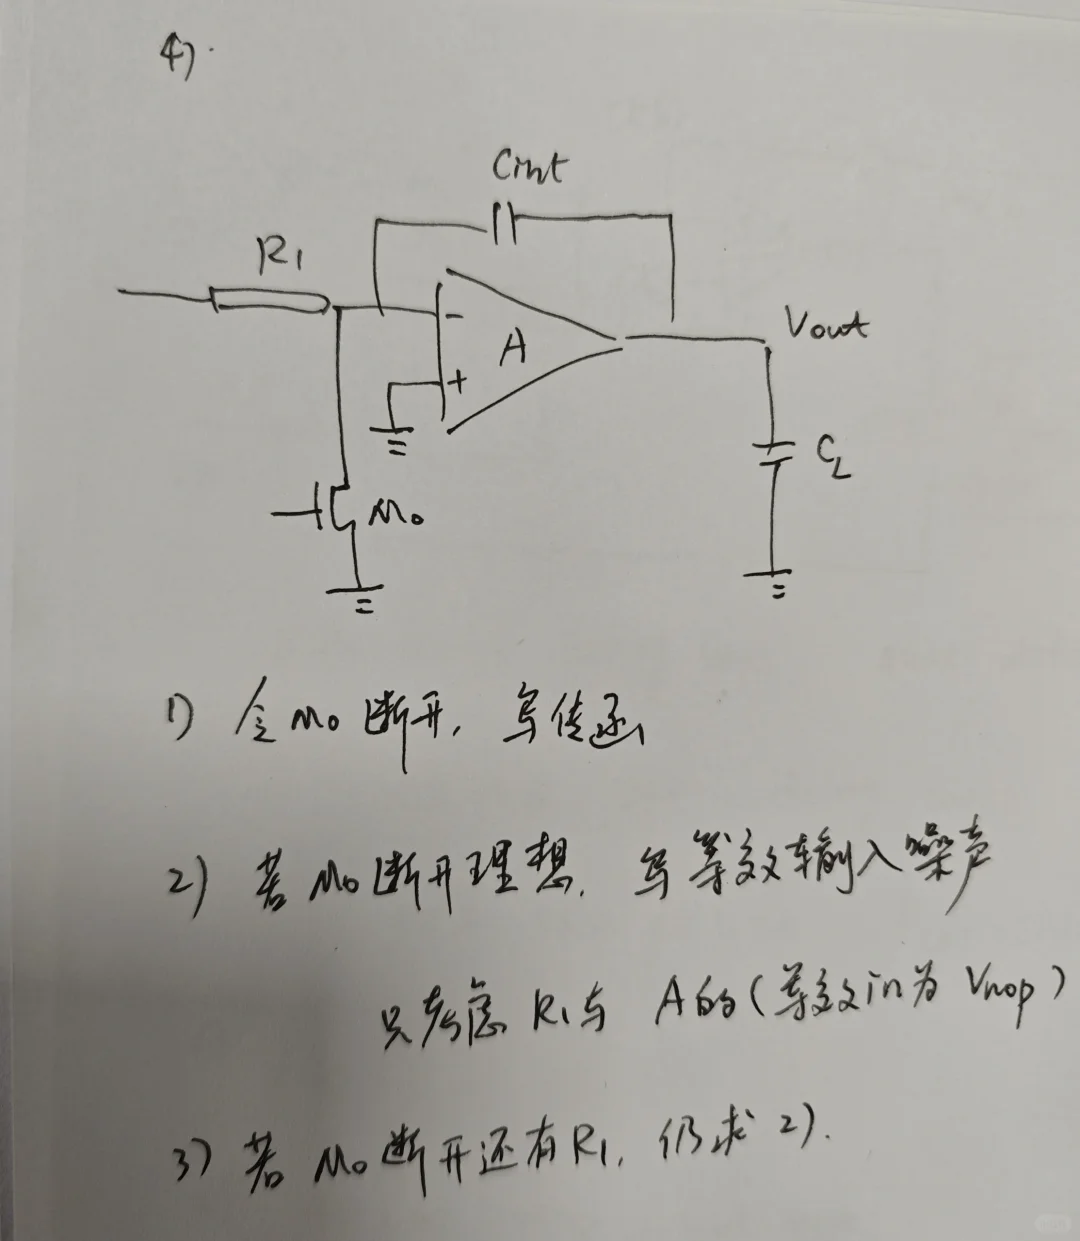 4).
Cint
R1
Vout
-
A
+
CL
M0
1) 令 M0 断开, 写传函
2) 若 M0 断开理想, 写等效输入噪声
只考虑 R1与 A的(等效in为 Vnop)
3) 若 M0 断开还有R1, 仍求 2).